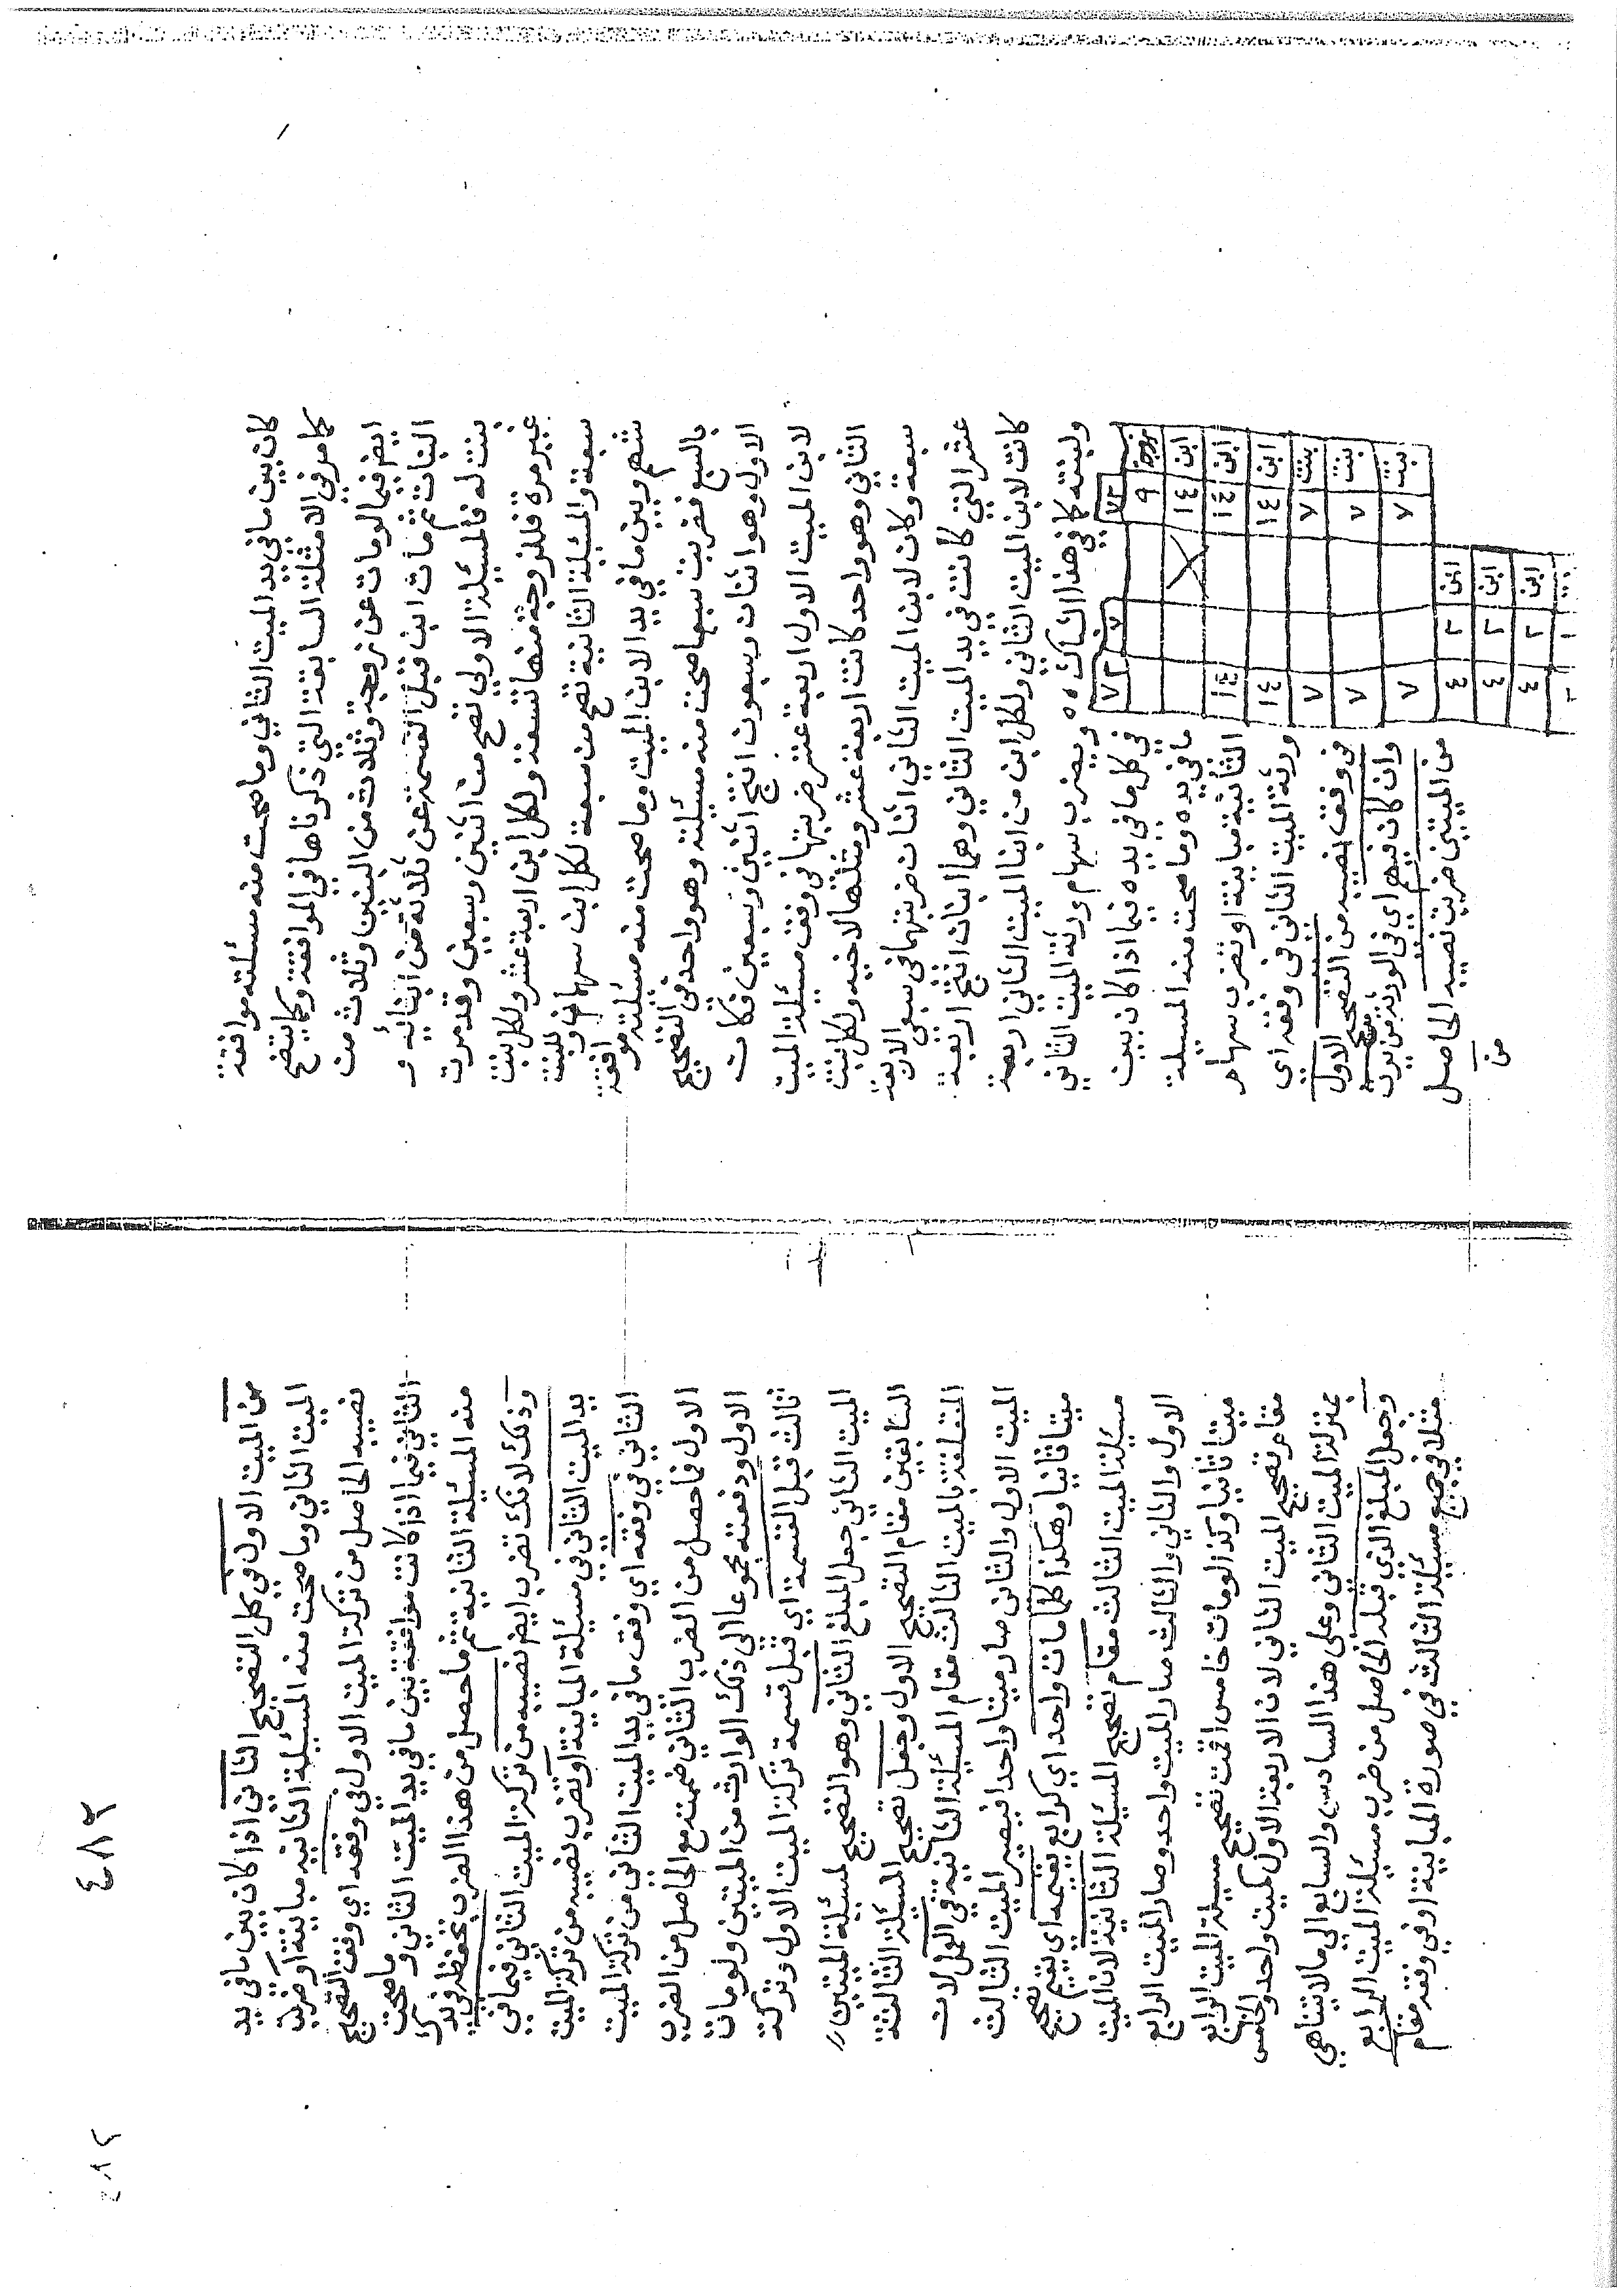 كان بين مافي يد الميت الثاني وما صحت منه مسئلته موافقة
كما مرفي الامثلة السابقة التي ذكرناها في الموافقة وكما يتضح
ايض فيما لومات عن زوجة وثلاث من البنين وثلاث من
البنات ثم مات ابن قبل القسمة عن ثلاثة من ابنائه و
بنت له فالمسئلة الاولى تصح من اثنين وسبعين وقد مرت
غير مرة فللزوجة منها تسعة ولكل ابن اربعة عشر ولكل بنت
سبعة والمسئلة الثانية تصح من سبعة لكل ابن سهمان وللبنت
سهم وبين مافي يد الابن الميت وما صحت منه مسئلته موافقة
بالسبع فضربت سبعها صحت منه مسئلته وهو واحد في التصحيح
الاول وهو اثنان وسبعون انتج اثنين وسبعين فكان
لابن الميت الاول اربعة عشر ضربتها في وفق مسئلة الميت
الثاني وهو واحد كانت اربعة عشر ومثلها لاخيه ولكل بنت
سبعة وكان لابن الميت الثاني اثنان ضربتهما في سبعي الاربعة
عشر التي كانت في يد الميت الثاني وهما اثنان انتج اربعة
كانت لابن الميت الثاني ولكل ابن من ابنا الميت الثاني اربعة
ولبنته كما في هذا الشباك ويضرب سهام ورثة الميت الثاني
في كل مافي يده فيما اذا كان بين
مافي يده وما صحت منه المسيلة
الثانية مباينة او تضرب سهام
ورثة الميت الثاني في وفقه اي
في وفق نصيبه من التصحيح الاول
وان كان فيهم اي في الورثة من يرث
من الميتين ضربت نصيبه الحاصل
من
٧٢ ٧ ٧٢
زوجة ٩
ابن ١٤
ابن ١٤ ١٤
ابن ١٤ ١٤
بنت ٧ ٧
بنت ٧ ٧
بنت ٧ ٧
ابن ٢ ٤
ابن ٢ ٤
ابن ٢ ٤
من الميت الاول في كل التصحيح الثاني اذا كان بين مافي يد
الميت الثاني وما صحت منه المسيلة الثانيه مباينة او ضربت
نصيبه الحاصل من تركة الميت الاول في وفقه اي وفق التصحيح
الثاني فيما اذا كانت موافقة بين مافي يد الميت الثاني و ماصحت
منه المسيلة الثانية ثم ما حصل من هذا الضرب تحفظ في يدك
وذلك لانك تضرب ايض نصيبه من تركة الميت الثاني فيمافي
يد الميت الثاني في مسيلة المباينة او تضرب نصيبه من تركة الميت
الثاني في وفقه اي وفق مافي يد الميت الثاني من تركة الميت
الاول فما حصل من الضرب الثاني ضمته مع الحاصل من الضرب
الاول ودفعته مجموعا الى ذلك الوارث من الميتين ولومات
ثالث قبل القسمة اي قبل قسمة تركة الميت الاول وتركة
الميت الثاني جعل المبلغ الثاني وهو التصحيح لمسيلة الميتين
السابقين مقام التصحيح الاول وجعل تصحيح المسيلة الثالثة
المتعلقة بالميت الثالث مقام المسيلة الثانية في العمل لان
الميت الاول والثاني صار ميتا واحدا فيصير الميت الثالث
ميتا ثانيا وهكذا كلما مات واحد اي كرابع يقيمه اي يقيم تصحيح
مسيلة الميت الثالث مقام تصحيح المسيلة الثانية لان الميت
الاول والثاني والثالث صار الميت واحد وصار الميت الرابع
ميتا ثانيا وكذا لومات خامس اقمت تصحيح مسيلة الميت الرابع
مقام تصحيح الميت الثاني لان الاربعة الاول كميت واحد والخامس
بمنزلة الميت الثاني وعلى هذا السادس والسابع الى مالا يتناهي
وجعل المبلغ الذي قبله الحاصل من ضرب مسيلة الميت الرابع
مثلا في جميع مسيلة الثالث في صورة المباينة او في وفقه مقام
٤٨٣